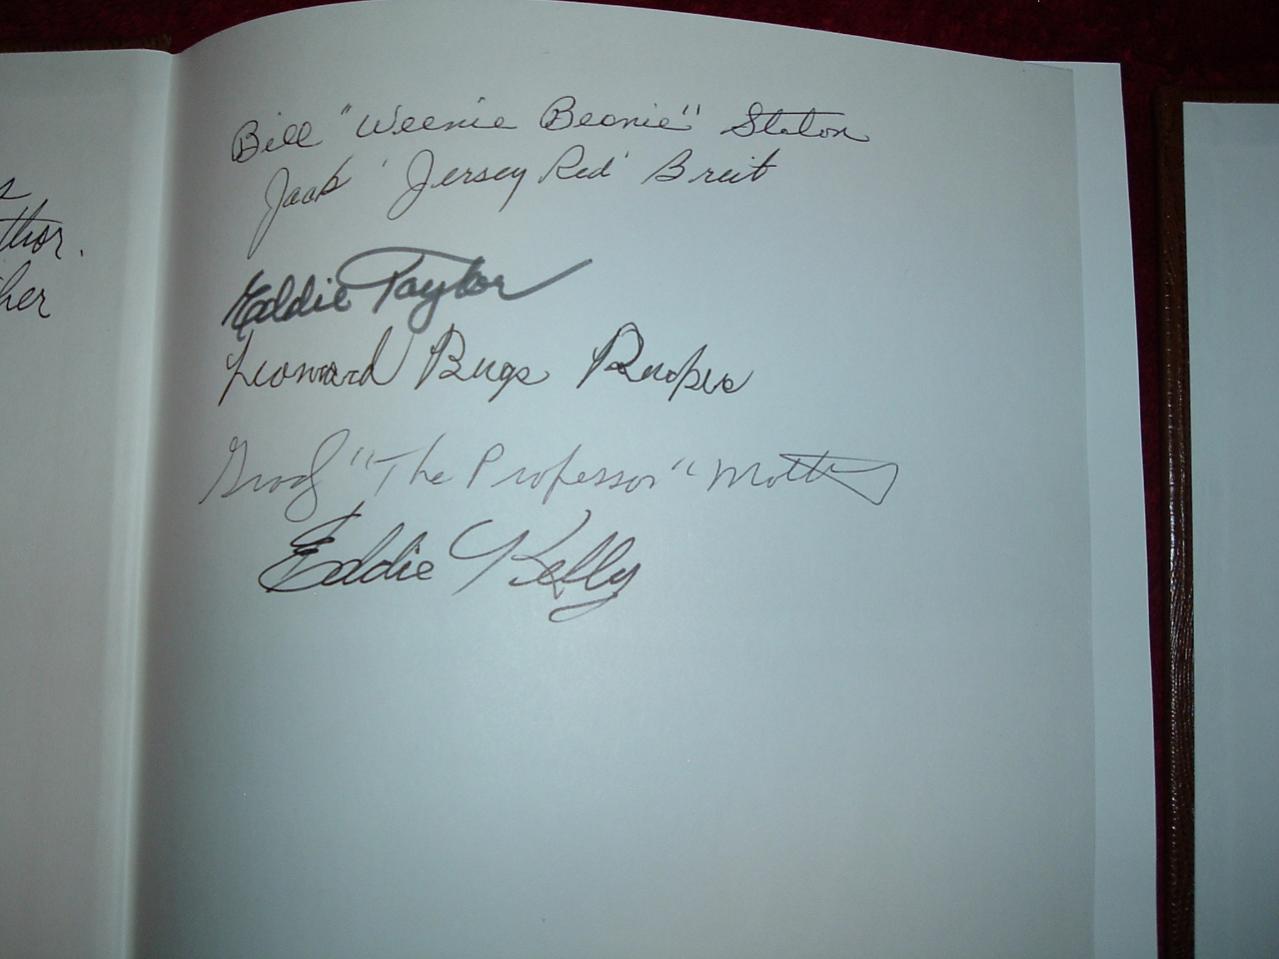 s
thor.
her
Bill "Weenie Beenie" Staton
Jack 'Jersey Red' Breit
Eddie Taylor
Leonard Bugs Rucker
Grady "The Professor" Mathews
Eddie Kelly